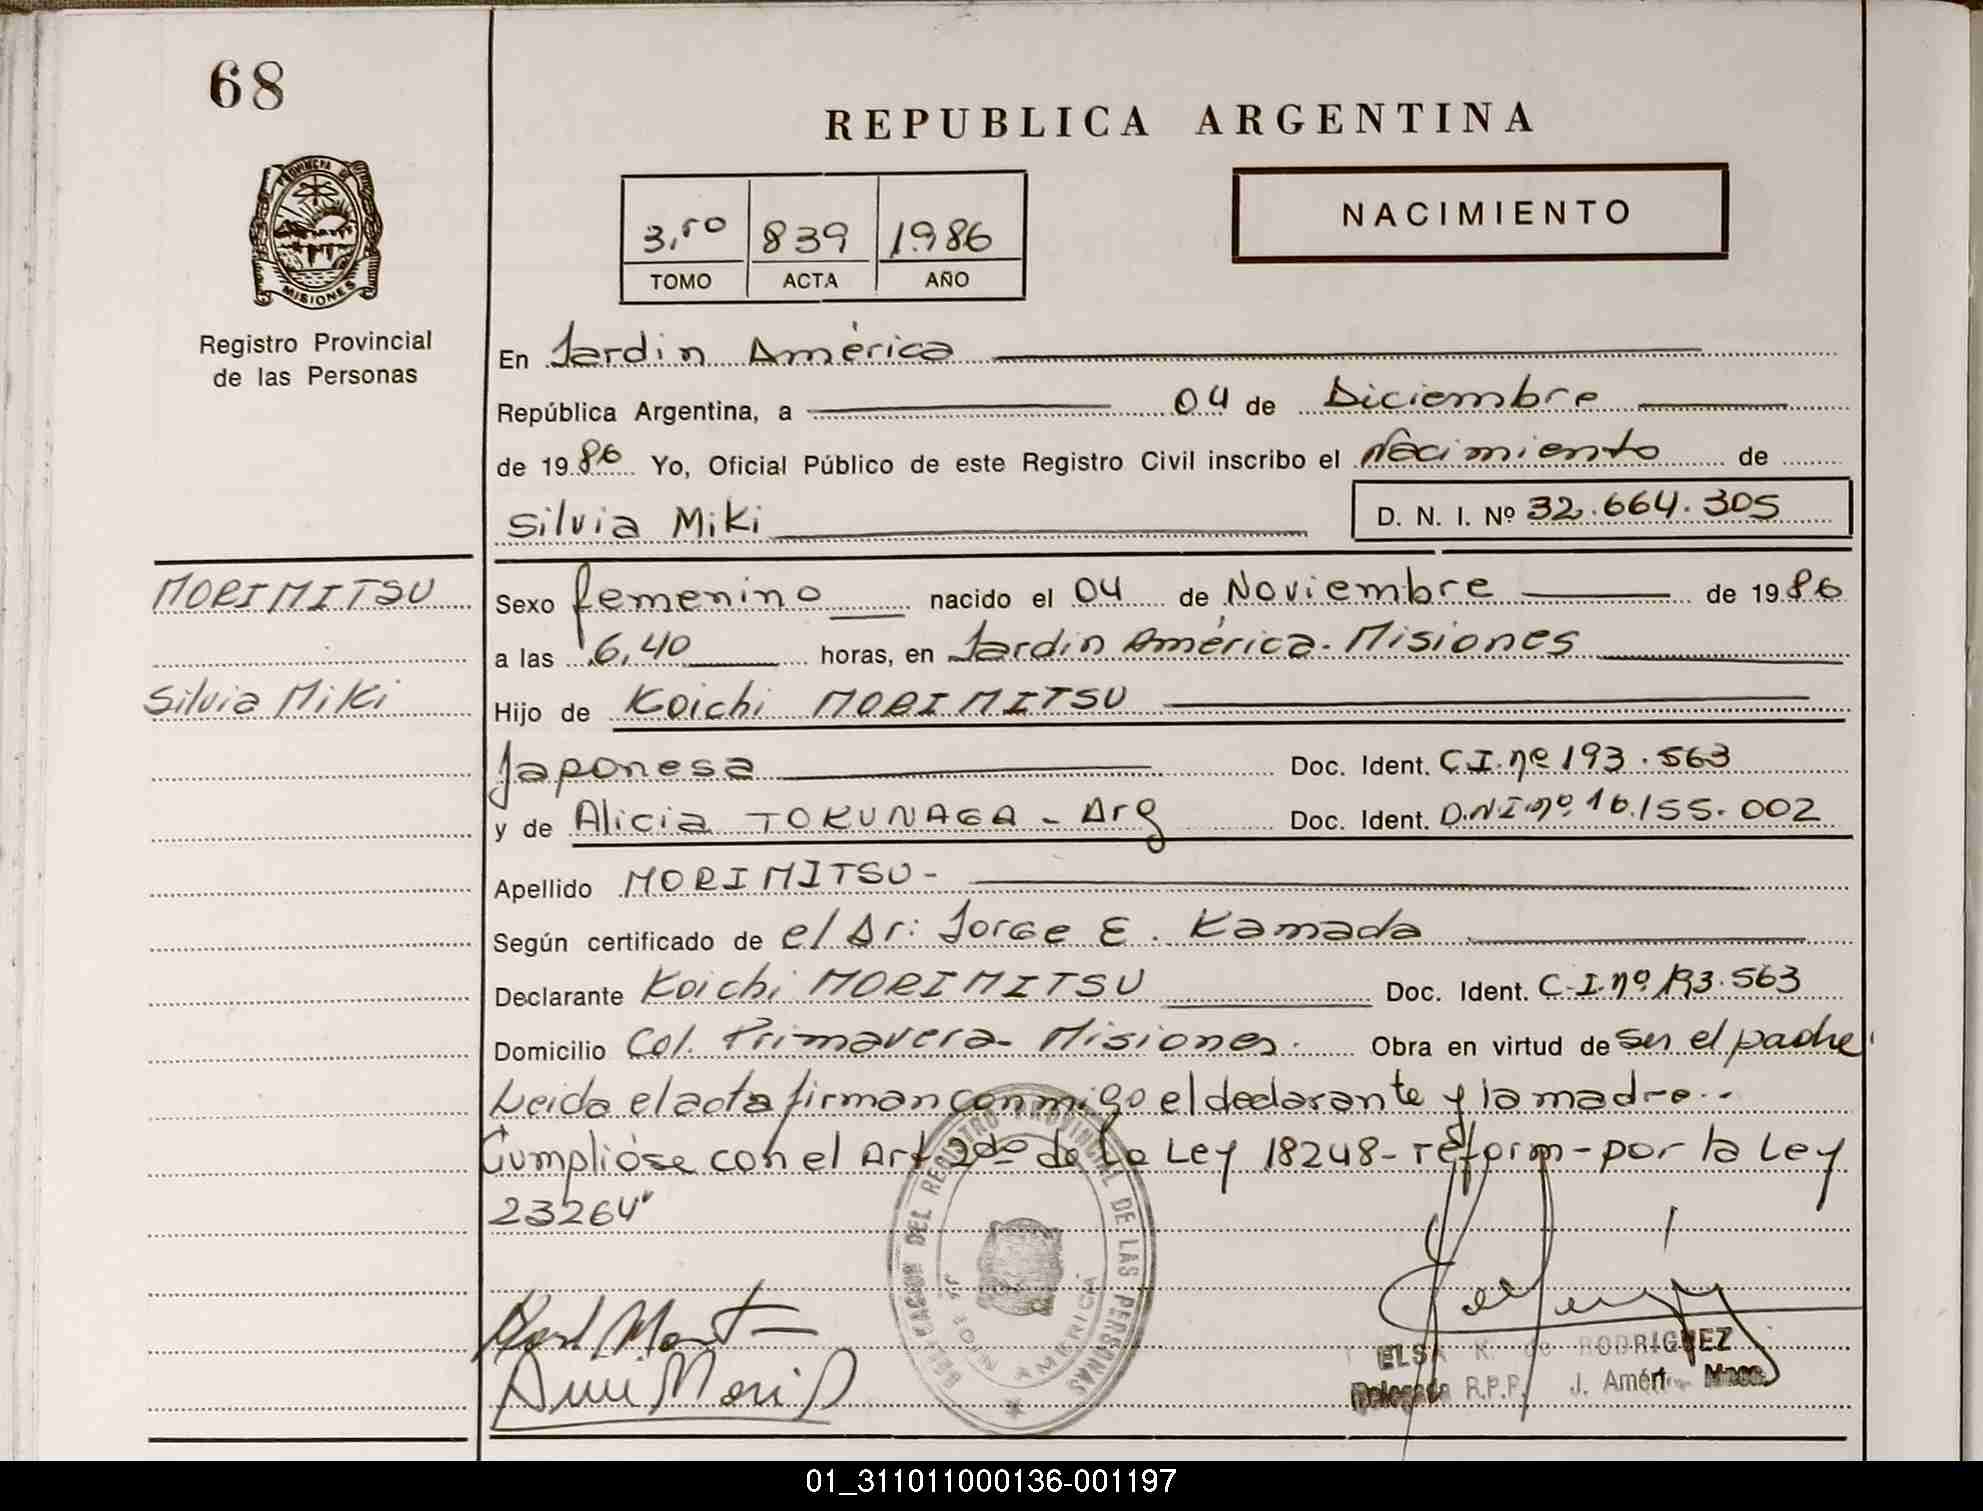 68
REPUBLICA ARGENTINA
PROVINCIA DE
MISIONES
3,ro 839 1986
TOMO ACTA AÑO
NACIMIENTO
Registro Provincial
de las Personas
En Jardin América
República Argentina, a 04 de Diciembre
de 1986 Yo, Oficial Público de este Registro Civil inscribo el Nacimiento de
Silvia Miki D. N. I. Nº 32.664.305
MORIMITSU
Silvia Miki
Sexo femenino nacido el 04 de Noviembre de 1986
a las 6,40 horas, en Jardin América - Misiones
Hijo de Koichi MORIMITSU
Japonesa Doc. Ident. C.I. nº 193.563
y de Alicia TOKUNAGA - Arg Doc. Ident. D.N.I nº 16.155.002
Apellido MORIMITSU -
Según certificado de el Dr: Jorge E. Kamada
Declarante Koichi MORIMITSU Doc. Ident. C.I. nº 193.563
Domicilio Col. Primavera - Misiones. Obra en virtud de ser el padre
Leida el acta firman conmigo el declarante y la madre..
Cumplióse con el Art 2do de la Ley 18248 - reform - por la Ley
23264
DELEGACION DEL REGISTRO PROVINCIAL DE LAS PERSONAS
JARDIN AMERICA
ELSA R. de RODRIGUEZ
Delegada R.P.P. J. Améri Mnes.
01_311011000136-001197